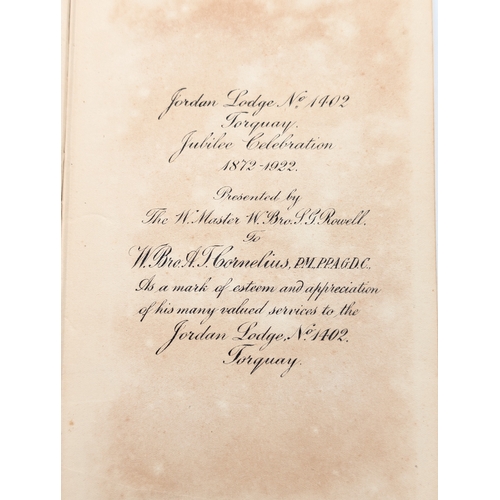 Jordan Lodge Nº 1402
Torquay.
Jubilee Celebration
1872-1922.
Presented by
The W. Master W. Bro. S. G. Rowell.
To
W. Bro. A. T. Cornelius, P.M. P.P.A.G.D.C.,
As a mark of esteem and appreciation
of his many valued services to the
Jordan Lodge, Nº 1402.
Torquay.